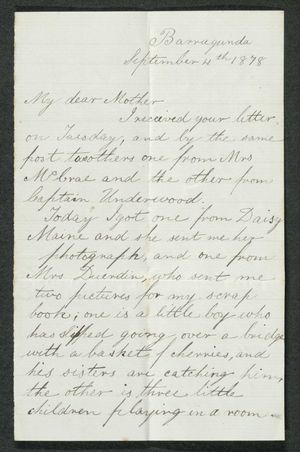 Barragunda
September 4th 1878
My dear Mother
I received your letter
on Tuesday, and by the same
post two others one from Mrs
McCrae and the other from
Captain Underwood.
Today I got one from Daisy
Maine and she sent me her
photograph, and one from
Mrs Duerdin, who sent me
two pictures for my scrap
book; one is a little boy who
has slipped going over a bridge
with a basket of cherries, and
his sisters are catching him,
the other is three little
children playing in a room